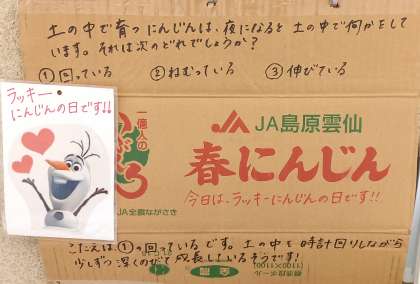 土の中で育つにんじんは、夜になると土の中で何かをして
います。それは次のどれでしょうか?
①回っている ②ねむっている ③伸びている
ラッキー
にんじんの日です!!
一億人の
JA島原雲仙
春にんじん
今日は、ラッキーにんじんの日です!!
JA全農ながさき
こたえは①の回っているです。土の中を時計回りしながら
少しずつ深くのびて成長しているそうです!